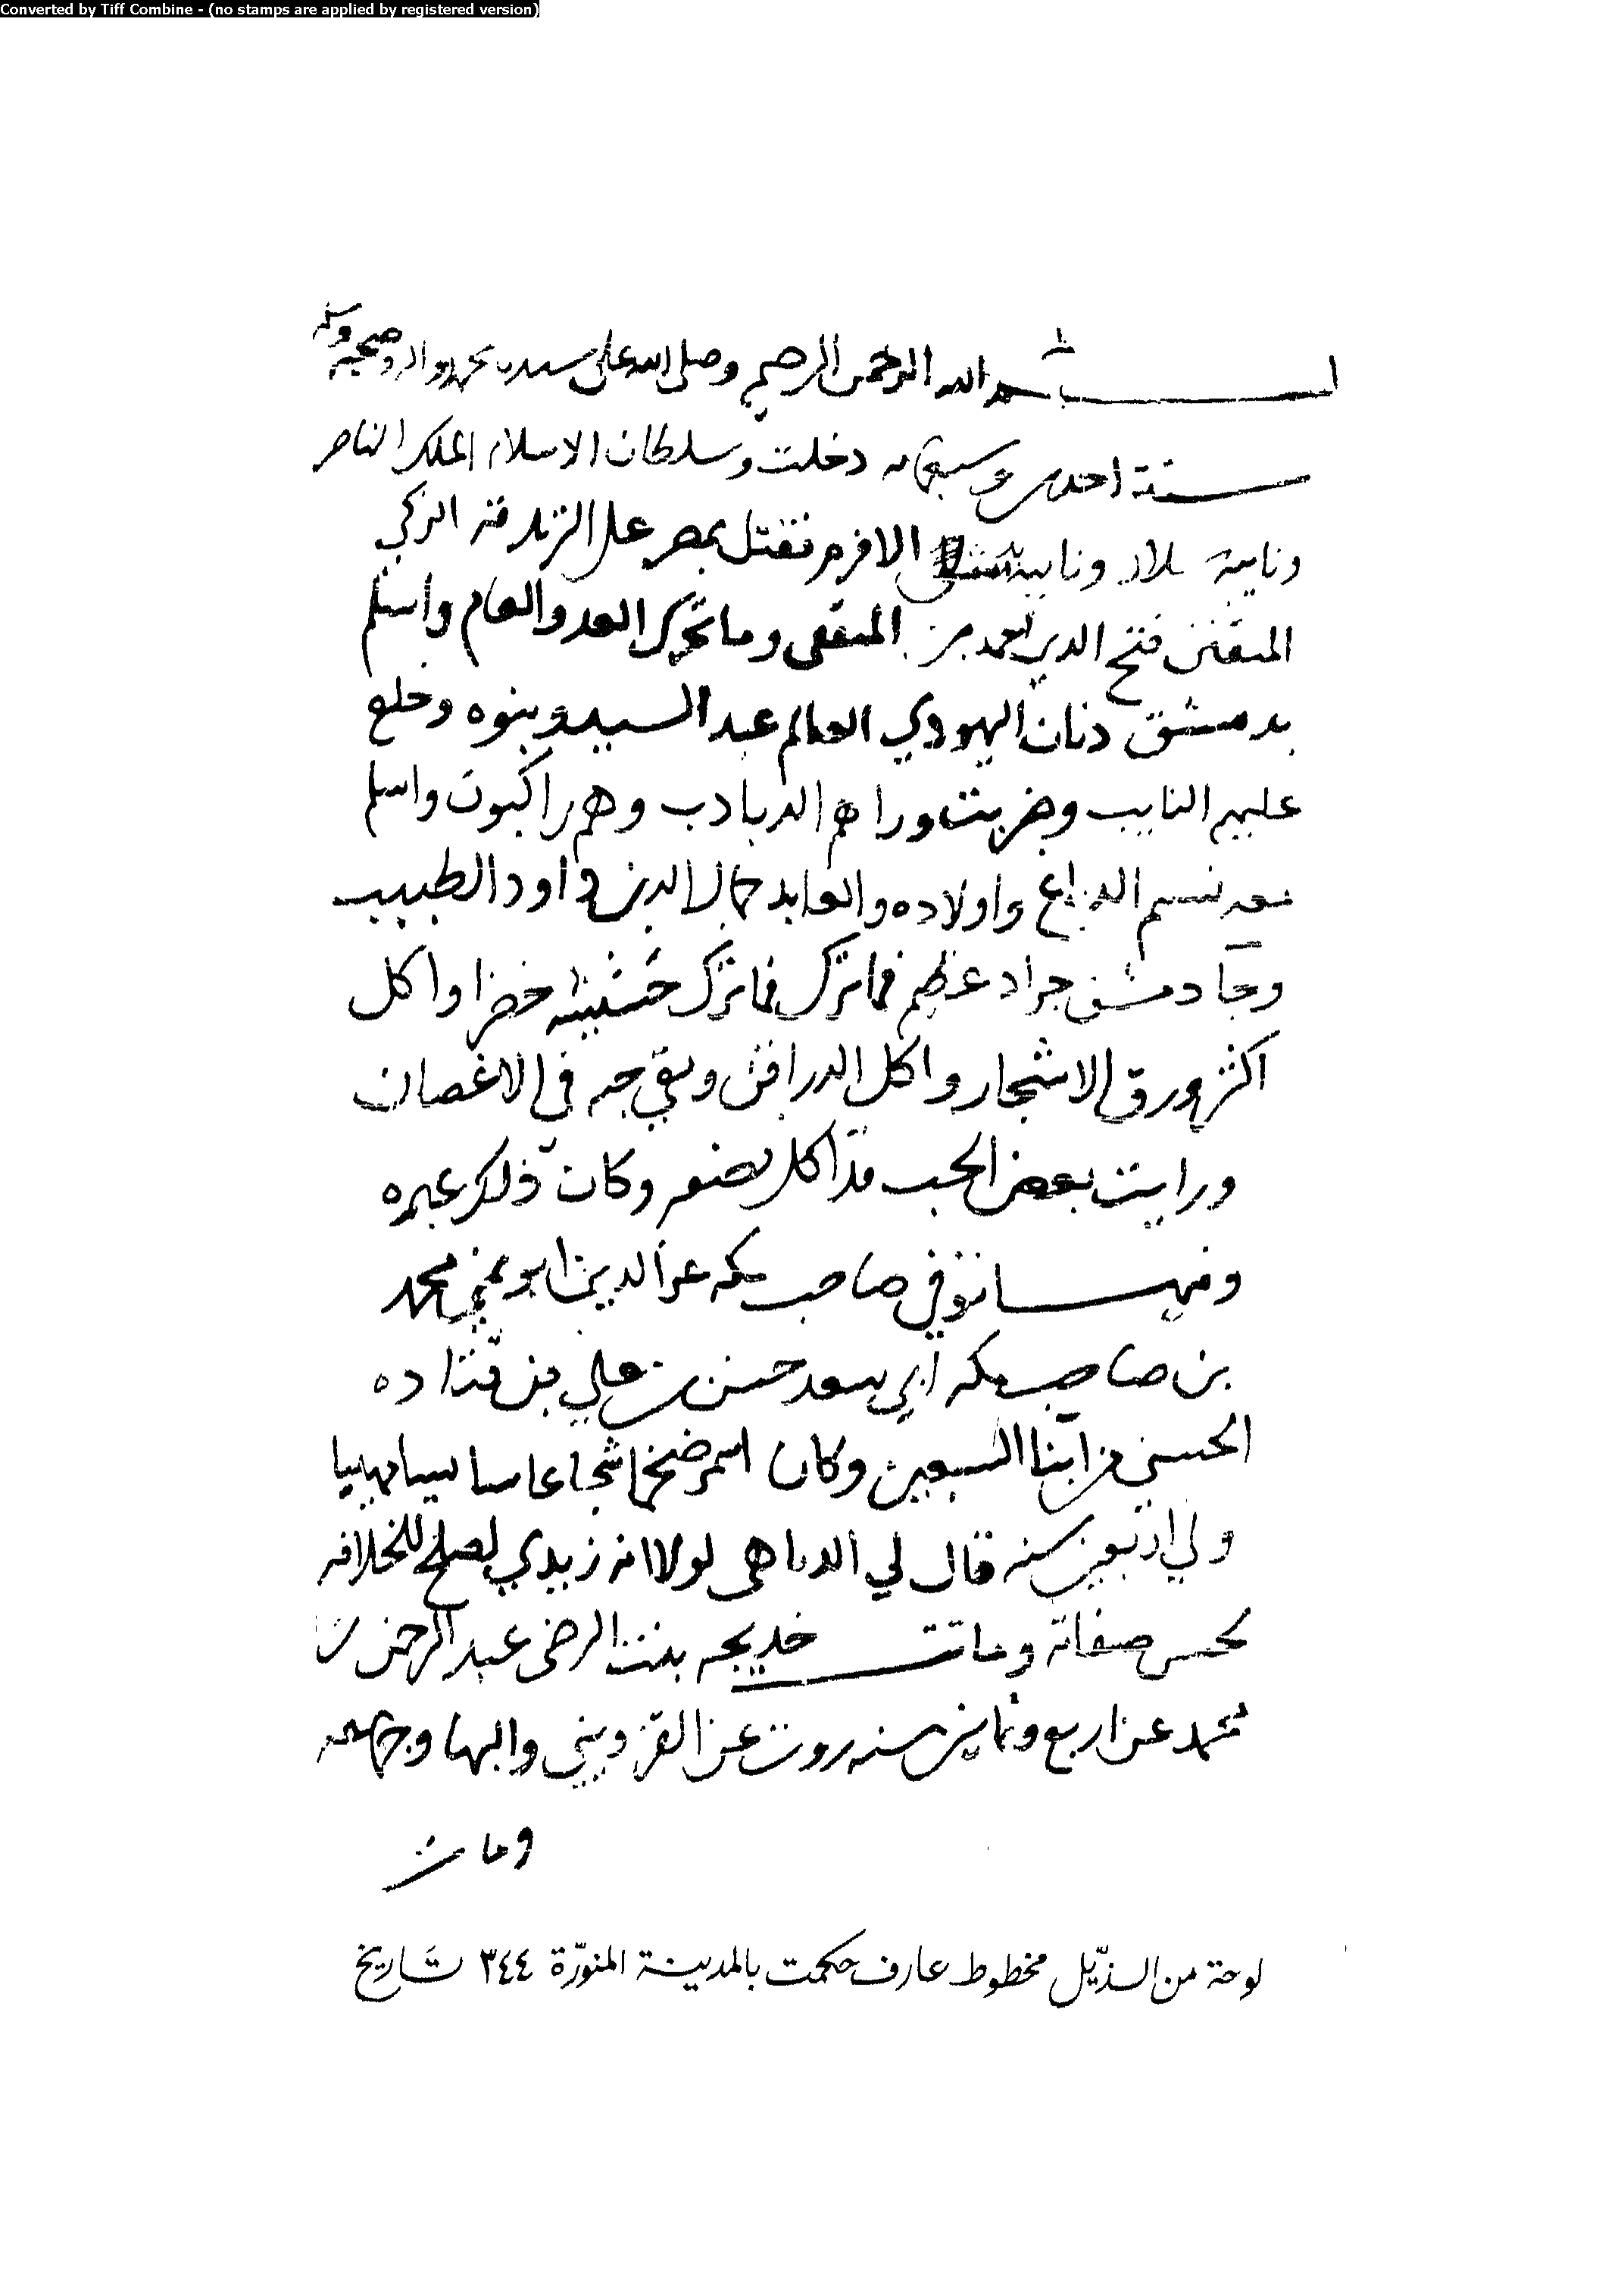 Converted by Tiff Combine - (no stamps are applied by registered version)
بسم الله الرحمن الرحيم وصلى الله على سيدنا محمد واله وصحبه وسلم
سنة احدى وسبعمايه دخلت وسلطان الاسلام الملك الناصر
ونايبه سلار ونايبه بدمشق الافرم فقتل بمصر على الزندقه الزكي
المتفنن فتح الدين احمد بن الثقفي وما تحرك العدو العام واسلم
بدمشق ديان اليهودي العالم عبد السيد وبنوه وخلع
عليهم النايب وضربت وراهم الدبادب وهم راكبون واسلم
معه نسيم الدباغ واولاده والعابد جمال الدين داود الطبيب
وجا دمشق جراد عظيم فما ترك فما ترك حشيشه خضرا واكل
اكثر ورق الاشجار واكل الدراقن وبقي حبه في الاغصان
ورايت بعض الحب قد اكل نصفه وكان ذلك عبره
وفيها توفي صاحب مكه عز الدين ابو نمي محمد
بن صاحب مكه ابي سعد حسن بن علي بن قتاده
الحسني من ابنا السبعين وكان اسمر ضخما شجاعا سايسا مهيبا
ولي اربعين سنه قال لي الدباهى لولا انه زيدي لصلح للخلافه
بحسن صفاته وماتت خديجه بنت الرضى عبد الرحمن بن
محمد عن اربع وثمانين سنه روت عن القزويني والبها وجماعه
ومات
لوحة من الذيّل مخطوط عارف حكمت بالمدينة المنوّرة ٣٤٤ تَاريخ